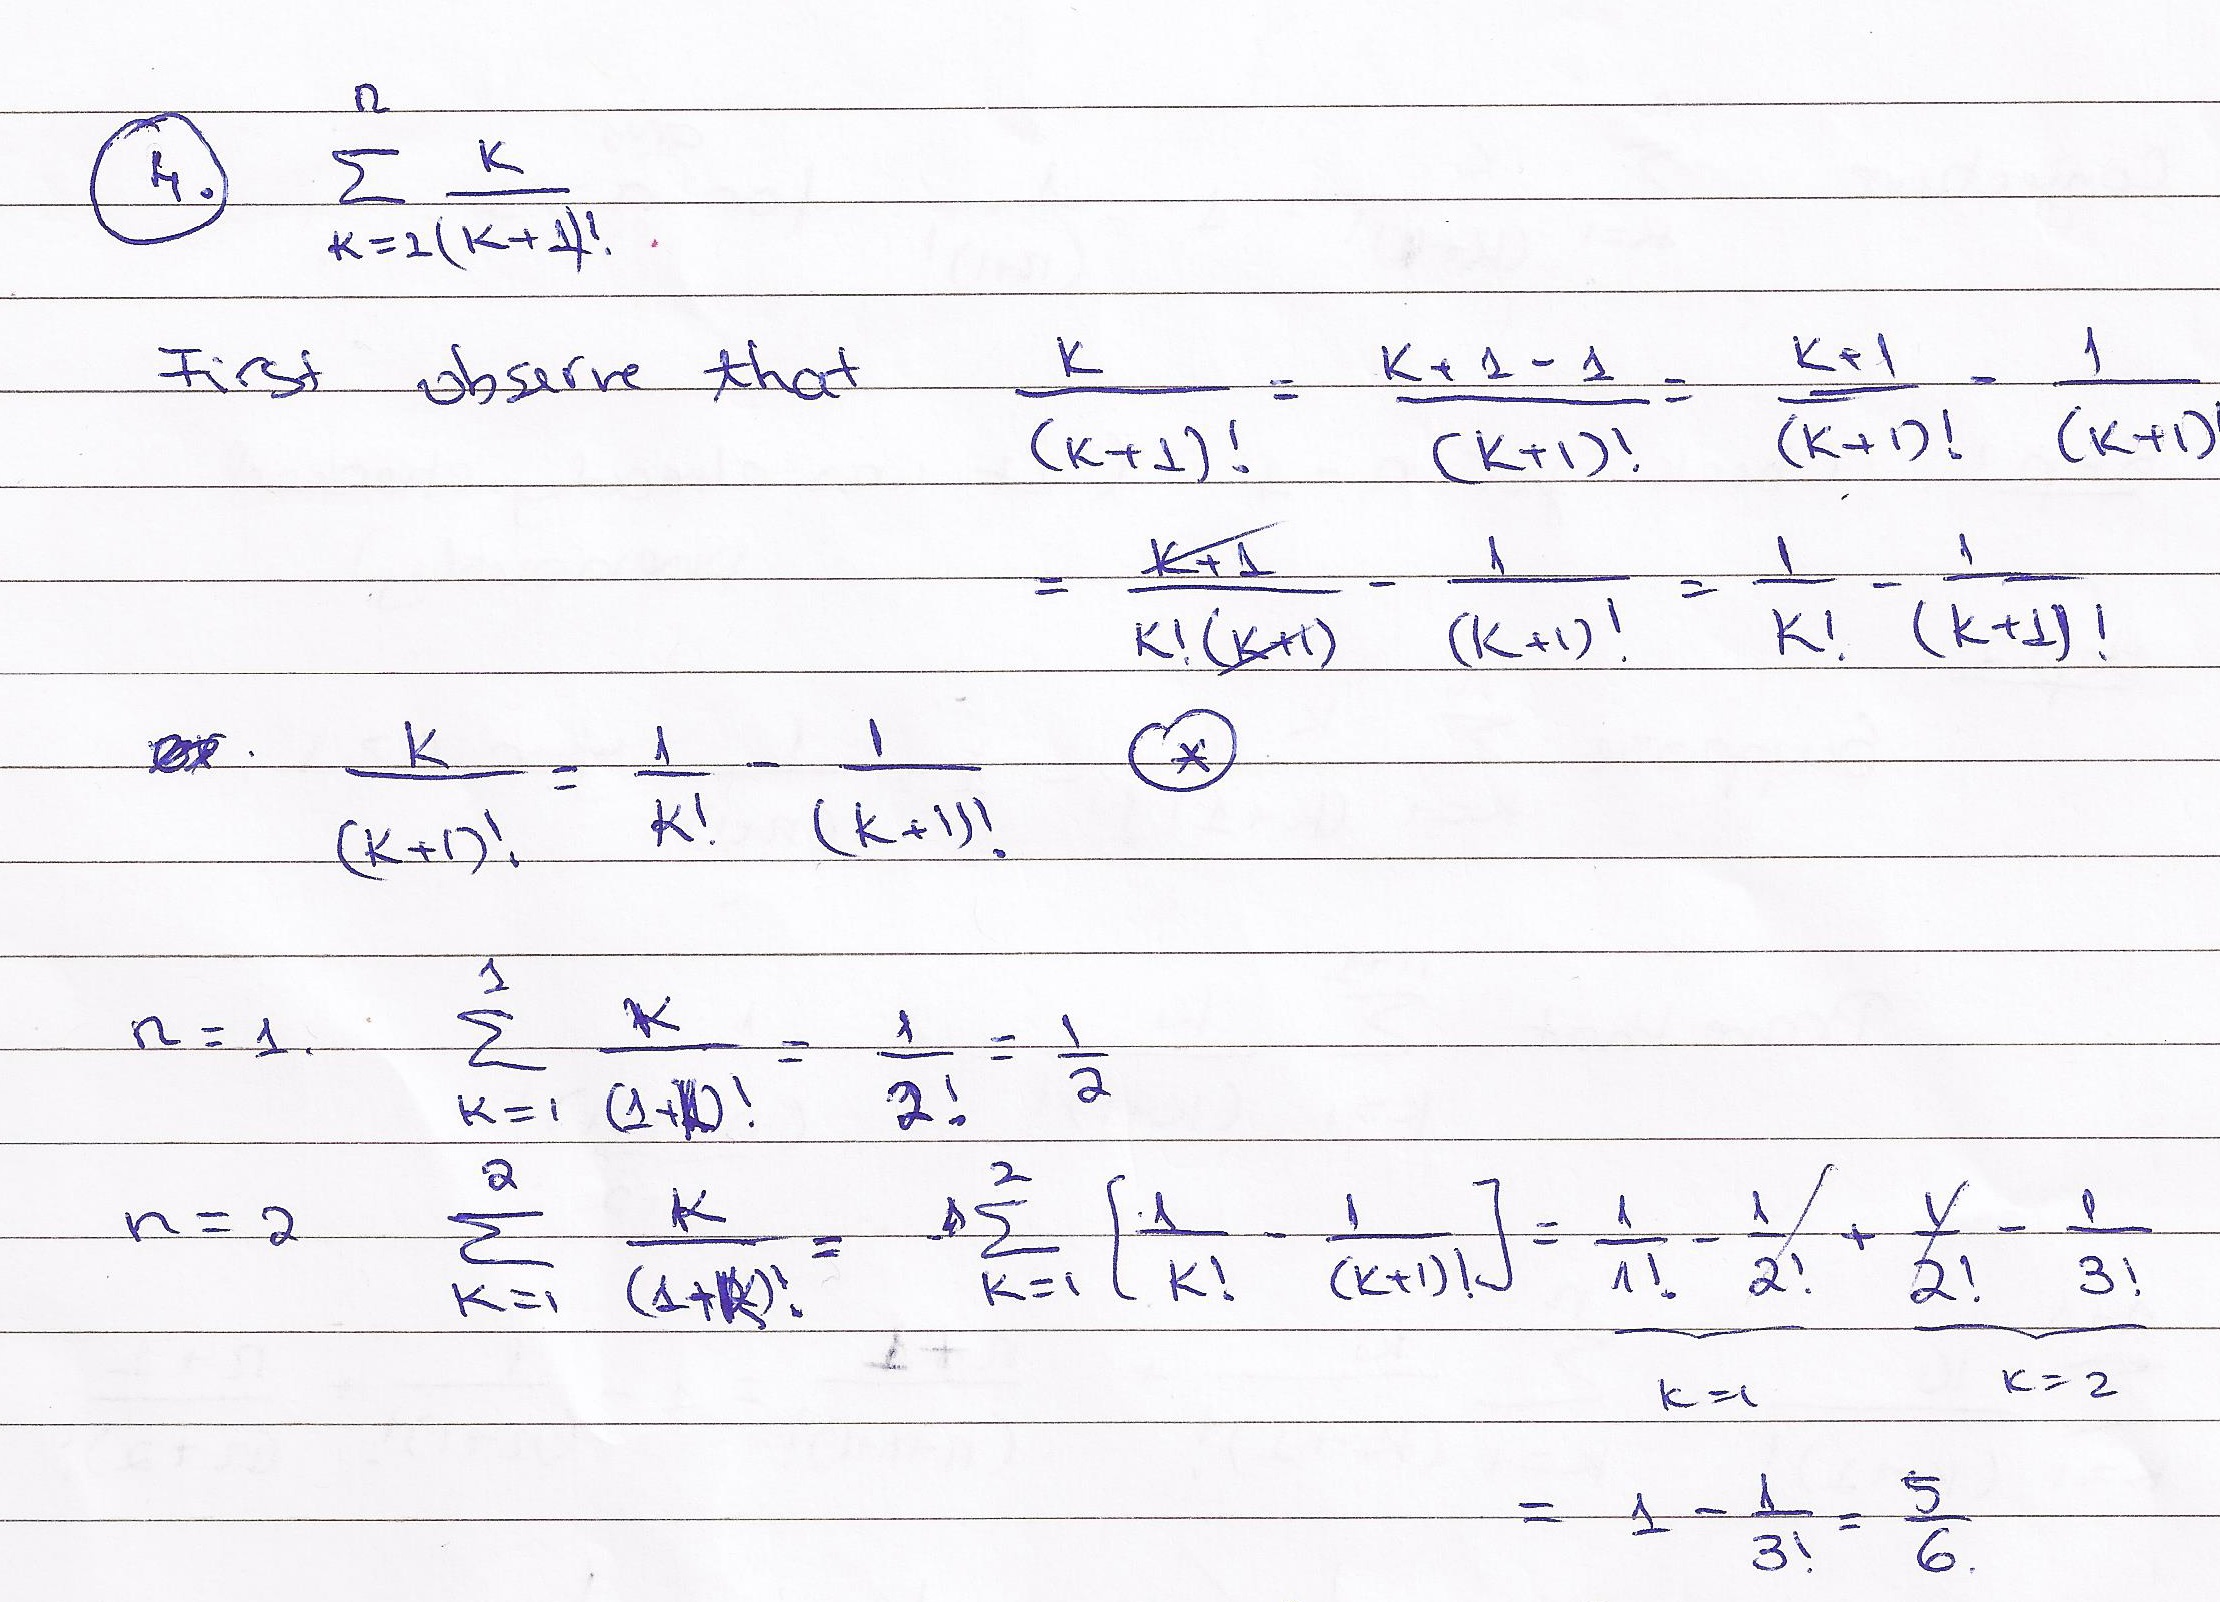 4. n∑k=1 k/(k+1)!
First observe that k/(k+1)! = (k+1-1)/(k+1)! = (k+1)/(k+1)! - 1/(k+1)!
= (k+1)/(k!(k+1)) - 1/(k+1)! = 1/k! - 1/(k+1)!
k/(k+1)! = 1/k! - 1/(k+1)! *
n=1. 1∑k=1 k/(1+k)! = 1/2! = 1/2
n=2 2∑k=1 k/(1+k)! = 2∑k=1 [1/k! - 1/(k+1)!] = 1/1! - 1/2! + 1/2! - 1/3!
k=1 k=2
= 1 - 1/3! = 5/6.